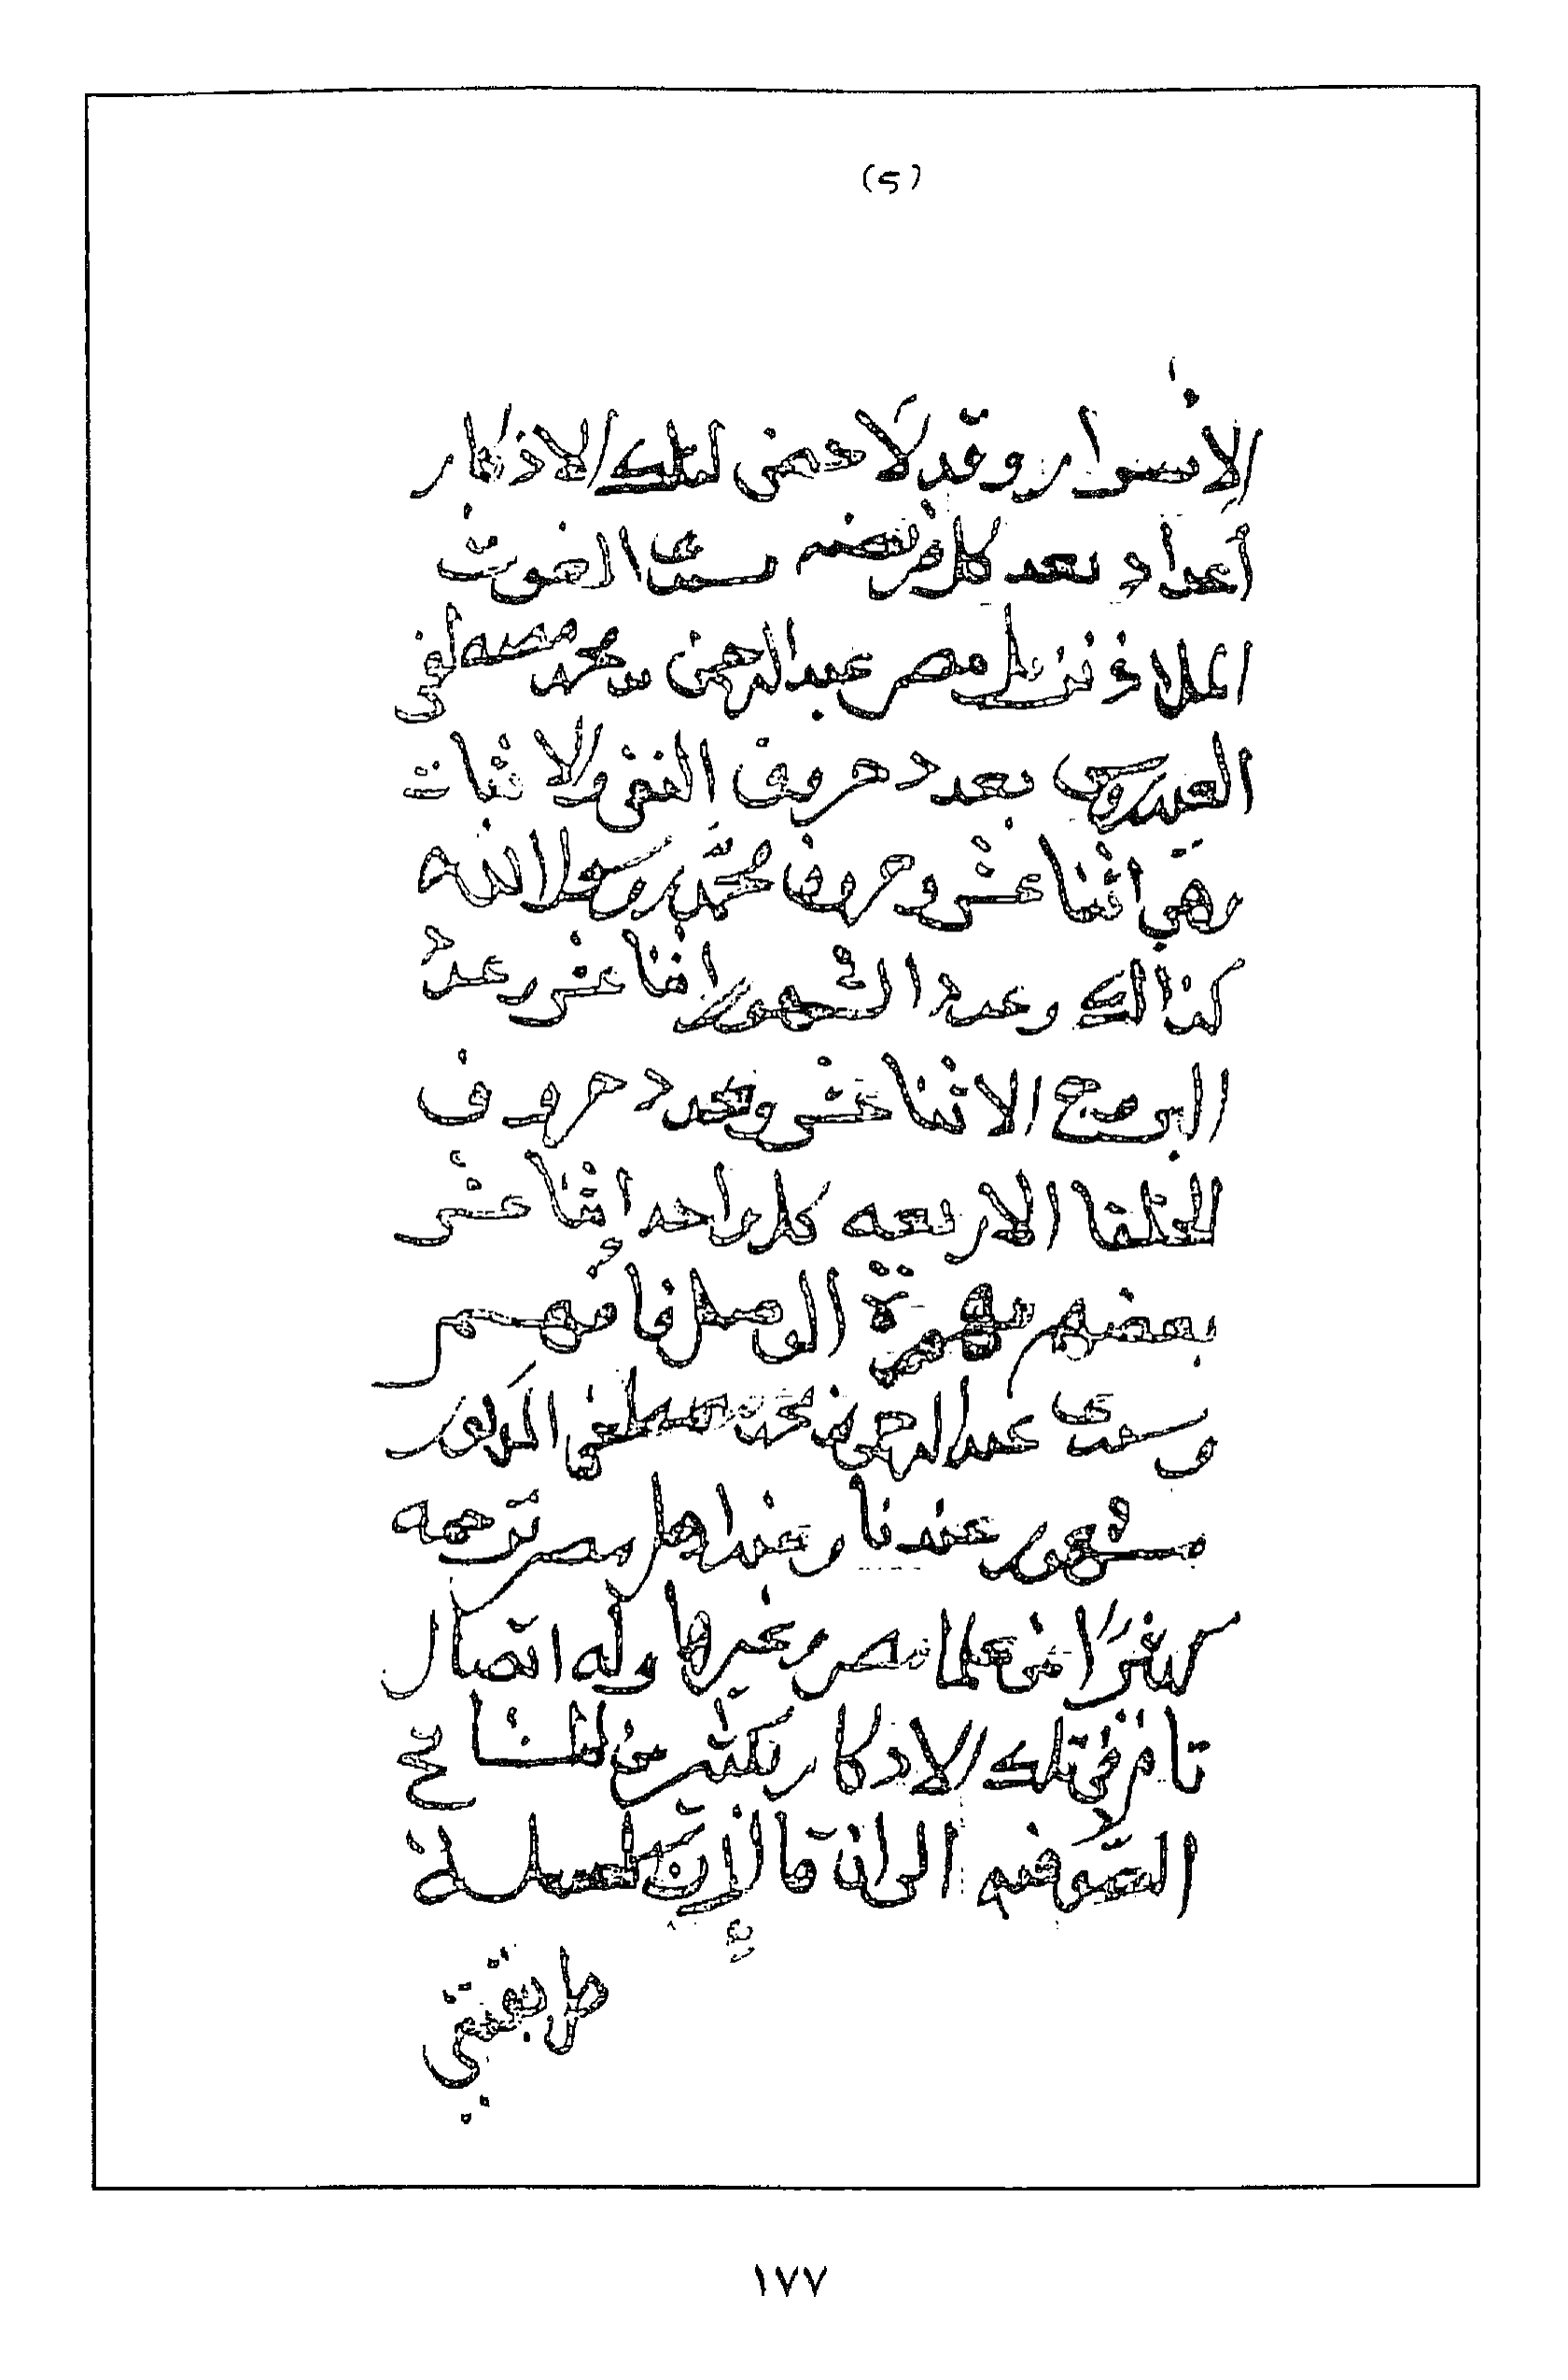 (5)
الانسوار وقد لا حضى لتلك الاذكار
أعداد بعد كل فريضه سيدى الغوث
الملاذ نزيل مصر عبدالرحمن بن محمد مصطفى
العيدروسى بعدد حروف النفى ولا ثبات
وهي اثنا عشر وحروف محمّد رسول الله
كذالك وعدد الشهور اثنا عشر وعدد
البروج الاثنا عشر وبعدد حروف
الخلفا الاربعه كل واحد اثنا عشر
بعضهم بهمزة الوصل فأفهم
وسيدى عبدالرحمن بن محمد مصطفى المذكور
مشهور عندنا وعند اهل مصر ترجمه
كثيرًا من علما مصر وغيرها وله اتصال
تام فى تلك الاذكار بكثير من المشايخ
الصّوفيه الى ان قال إنّ سلسلة
طريقتي
١٧٧